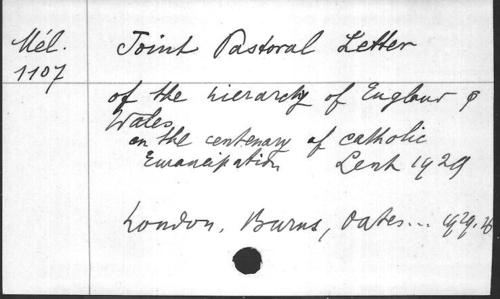 Mél.
1107
Joint Pastoral Letter
of the hierarchy of England &
Wales
on the centenary of catholic
Emancipation Lent 1929
London, Burns, Oates... 1929.